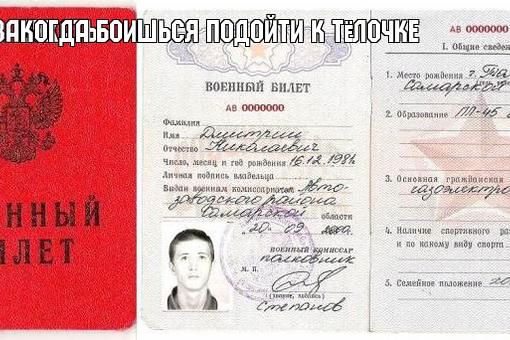 КОГДА БОИШЬСЯ ПОДОЙТИ К ТЕЛОЧКЕ
ЕННЫЙ
ИЛЕТ
ВОЕННЫЙ БИЛЕТ
АВ 0000000
Фамилия
Имя Дмитрий
Отчество Николаевич
Число, месяц и год рождения 16.12.198
Личная подпись владельца
Выдан военным комиссариатом Авто-
заводского района
Самарской области
20 09
ВОЕННЫЙ КОМИССАР
полковник
М. П.
(звание, подпись)
Степанов
АВ 0000000
I. Общие сведе
1. Место рождения г.
Самарской
2. Образование ПП-45
3. Основная гражданская
газоэлектро
4. Наличие спортивного раз
и по какому виду спорта
5. Семейное положение